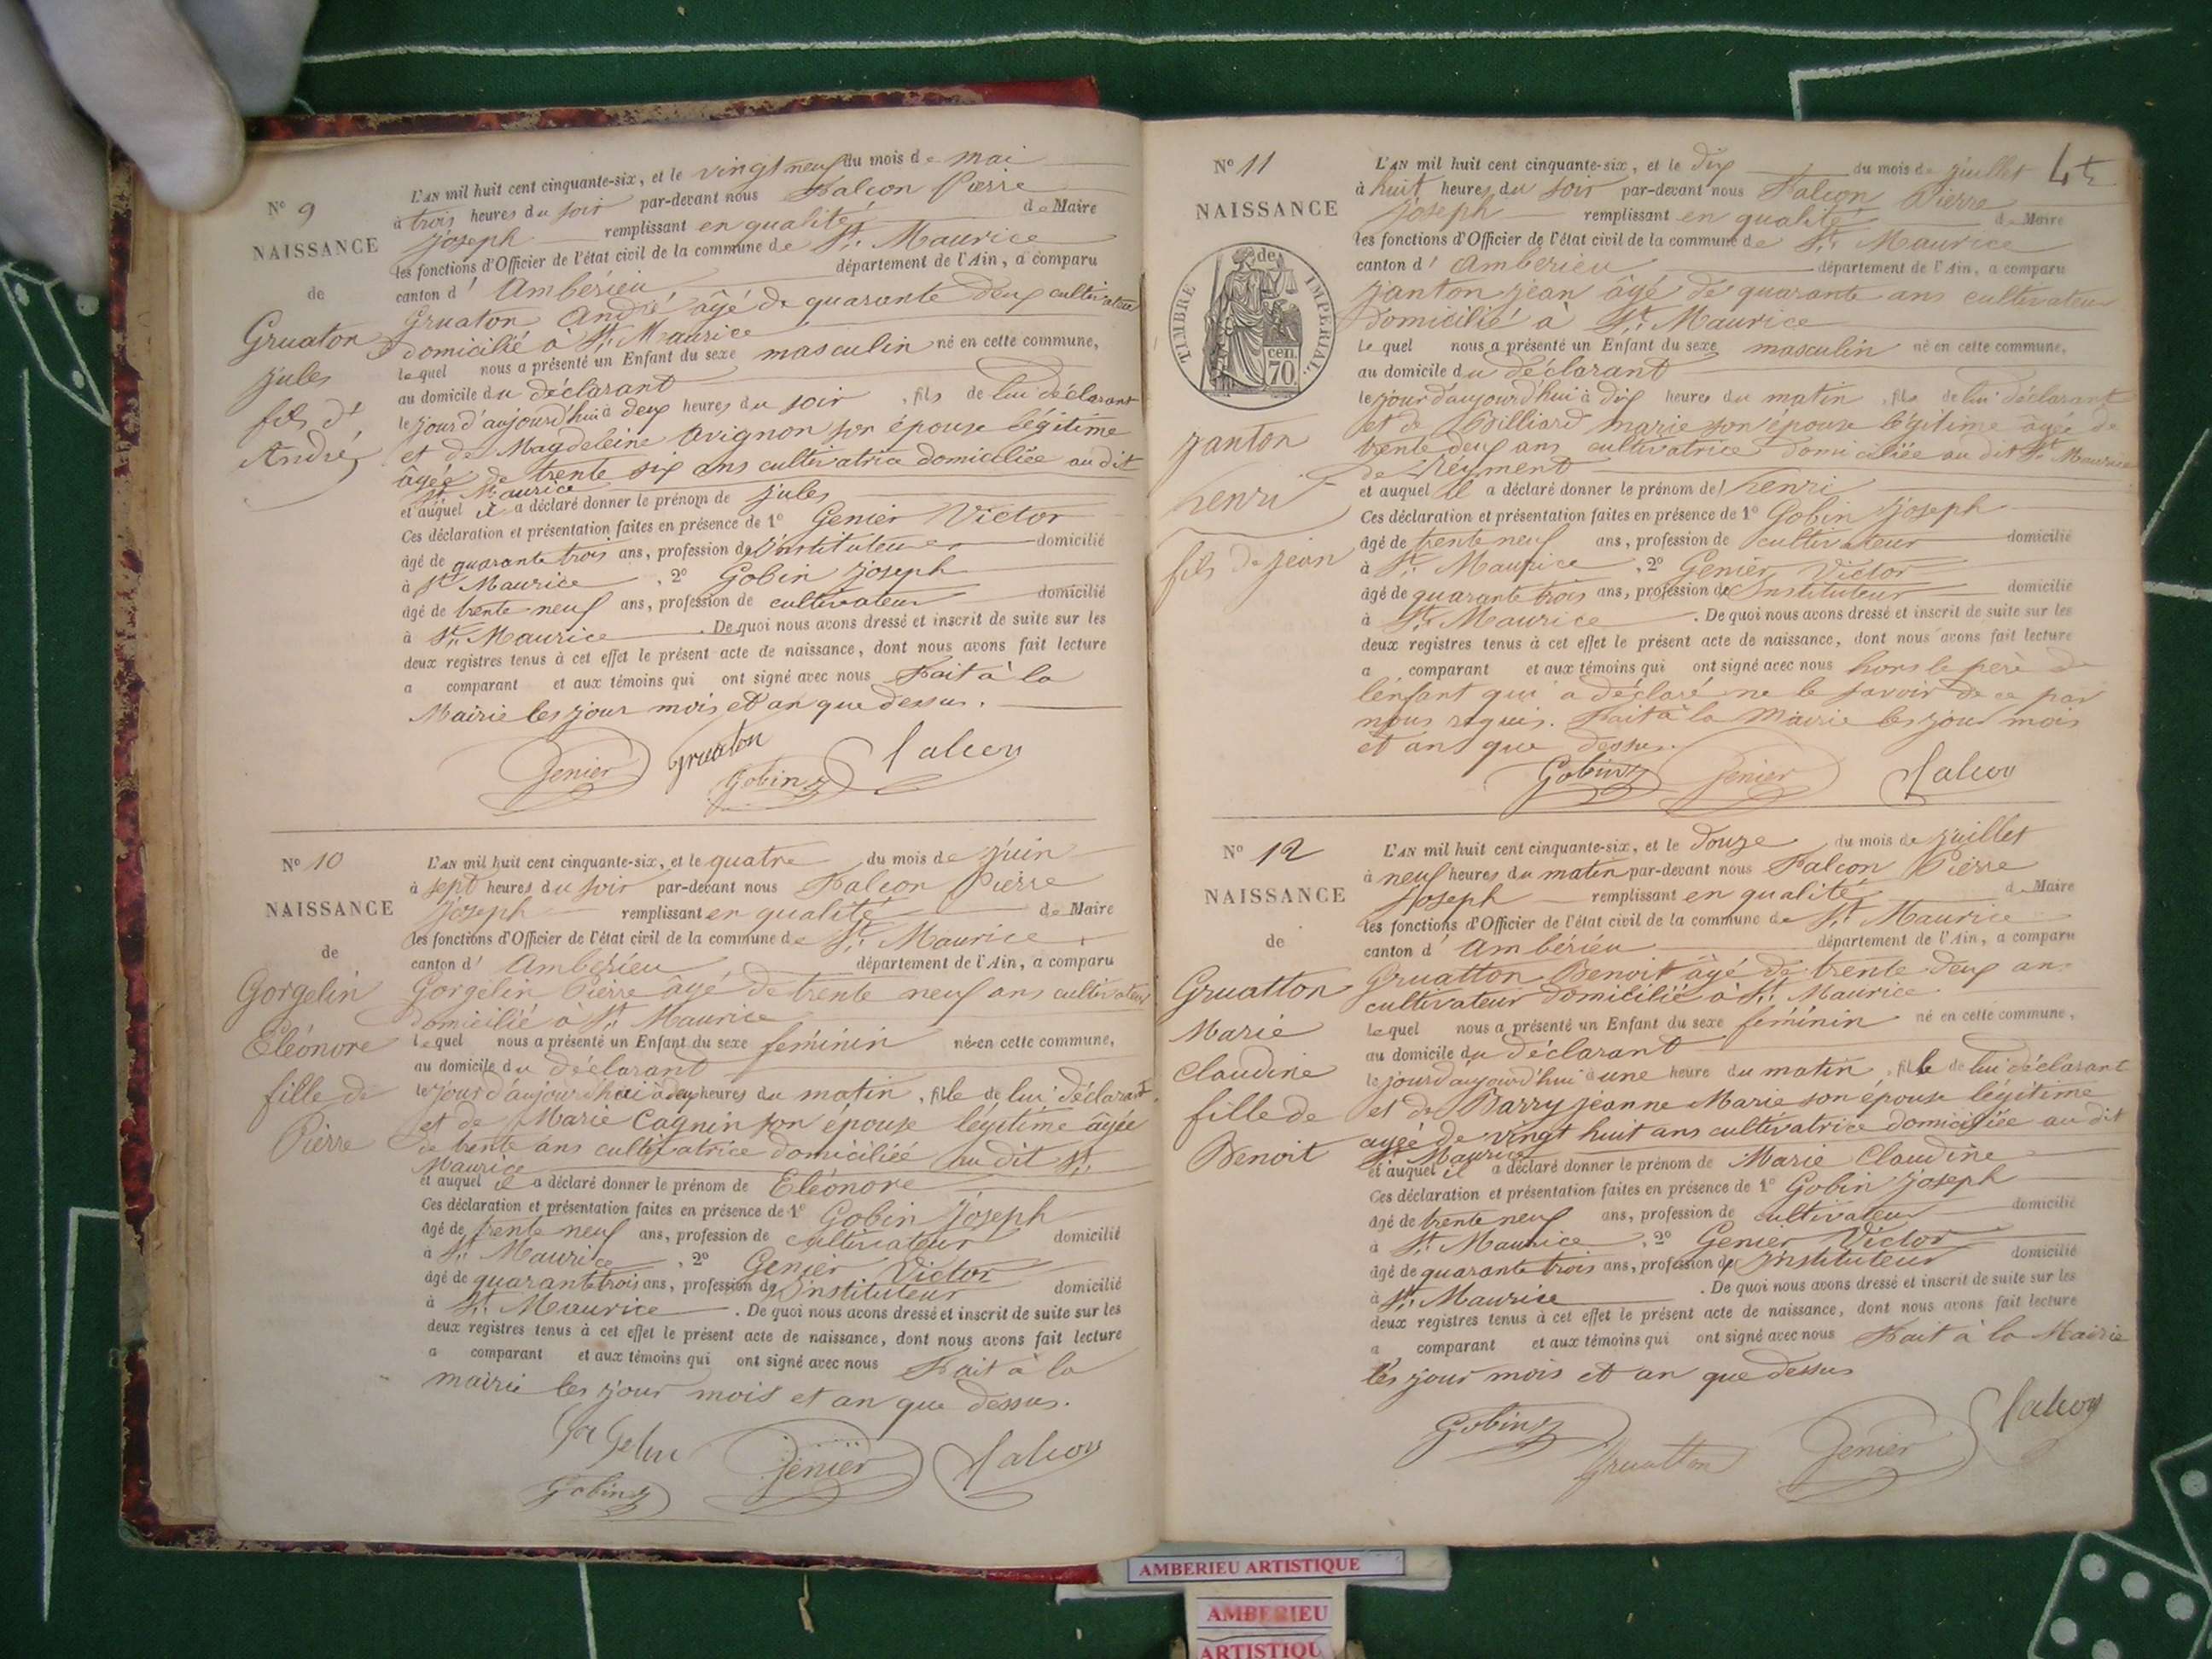 N° 9
NAISSANCE
de
Gruaton
Jules
fils d'
André
L'AN mil huit cent cinquante-six, et le vingt neuf du mois de mai
à trois heures du soir par-devant nous Falcon Pierre
Joseph remplissant en qualité de Maire
les fonctions d'Officier de l'état civil de la commune de St. Maurice
canton d' Ambérieu département de l'Ain, a comparu
Gruaton André âgé de quarante deux cultivateur
domicilié à St. Maurice
lequel nous a présenté un Enfant du sexe masculin né en cette commune,
au domicile du déclarant
le jour d'aujourd'hui à deux heures du soir, fils de lui déclarant
et de Magdeleine Avignon son épouse légitime
âgée de trente six ans cultivatrice domiciliée au dit
St. Maurice
et auquel il a déclaré donner le prénom de Jules
Ces déclaration et présentation faites en présence de 1° Genier Victor
âgé de quarante trois ans, profession d'Instituteur domicilié
à St Maurice, 2° Gobin Joseph
âgé de trente neuf ans, profession de cultivateur domicilié
à St. Maurice. De quoi nous avons dressé et inscrit de suite sur les
deux registres tenus à cet effet le présent acte de naissance, dont nous avons fait lecture
a comparant et aux témoins qui ont signé avec nous Fait à la
Mairie les jour mois et an que dessus.
Genier Gruaton Gobin J Falcon
N° 10
NAISSANCE
de
Gorgelin
Eléonore
fille de
Pierre
L'AN mil huit cent cinquante-six, et le quatre du mois de juin
à sept heures du soir par-devant nous Falcon Pierre
Joseph remplissant en qualité de Maire
les fonctions d'Officier de l'état civil de la commune de St. Maurice
canton d' Ambérieu département de l'Ain, a comparu
Gorgelin Pierre âgé de trente neuf ans cultivateur
domicilié à St. Maurice
lequel nous a présenté un Enfant du sexe féminin né en cette commune,
au domicile du déclarant
le jour d'aujourd'hui à deux heures du matin, fille de lui déclarant
et de Marie Cagnin son épouse légitime âgée
de trente ans cultivatrice domiciliée au dit St.
Maurice
et auquel il a déclaré donner le prénom de Eléonore
Ces déclaration et présentation faites en présence de 1° Gobin Joseph
âgé de trente neuf ans, profession de cultivateur domicilié
à St. Maurice, 2° Genier Victor
âgé de quarante trois ans, profession d'Instituteur domicilié
à St. Maurice. De quoi nous avons dressé et inscrit de suite sur les
deux registres tenus à cet effet le présent acte de naissance, dont nous avons fait lecture
a comparant et aux témoins qui ont signé avec nous Fait à la
mairie les jour mois et an que dessus.
Genier Falcon
Gobin J
N° 11
NAISSANCE
TIMBRE IMPERIAL
de
cen.
70.
Janton
henri
fils de Jean
L'AN mil huit cent cinquante-six, et le dix du mois de juillet
à huit heures du soir par-devant nous Falcon Pierre
Joseph remplissant en qualité de Maire
les fonctions d'Officier de l'état civil de la commune de St. Maurice
canton d' Ambérieu département de l'Ain, a comparu
Janton Jean âgé de quarante ans cultivateur
domicilié à St. Maurice
lequel nous a présenté un Enfant du sexe masculin né en cette commune,
au domicile du déclarant
le jour d'aujourd'hui à dix heures du matin, fils de lui déclarant
et de Billiard marie son épouse légitime âgée de
trente deux ans cultivatrice domiciliée au dit St. Maurice
de Réyment
et auquel il a déclaré donner le prénom de henri
Ces déclaration et présentation faites en présence de 1° Gobin Joseph
âgé de trente neuf ans, profession de cultivateur domicilié
à St. Maurice, 2° Genier Victor
âgé de quarante trois ans, profession d'Instituteur domicilié
à St. Maurice. De quoi nous avons dressé et inscrit de suite sur les
deux registres tenus à cet effet le présent acte de naissance, dont nous avons fait lecture
a comparant et aux témoins qui ont signé avec nous hors le père de
l'enfant qui a déclaré ne le savoir de ce par
nous requis. Fait à la Mairie les jour mois
et an que dessus.
Gobin J Genier Falcon
N° 12
NAISSANCE
de
Gruatton
Marie
Claudine
fille de
Benoit
L'AN mil huit cent cinquante-six, et le Douze du mois de juillet
à neuf heures du matin par-devant nous Falcon Pierre
Joseph remplissant en qualité de Maire
les fonctions d'Officier de l'état civil de la commune de St. Maurice
canton d' Ambérieu département de l'Ain, a comparu
Gruatton Benoit âgé de trente deux ans
cultivateur domicilié à St. Maurice
lequel nous a présenté un Enfant du sexe féminin né en cette commune,
au domicile du déclarant
le jour d'aujourd'hui à une heure du matin, fille de lui déclarant
et de Barry Jeanne Marie son épouse légitime
agée de vingt huit ans cultivatrice domiciliée au dit
St. Maurice
et auquel il a déclaré donner le prénom de Marie Claudine
Ces déclaration et présentation faites en présence de 1° Gobin Joseph
âgé de trente neuf ans, profession de cultivateur domicilié
à St. Maurice, 2° Genier Victor
âgé de quarante trois ans, profession d'Instituteur domicilié
à St. Maurice. De quoi nous avons dressé et inscrit de suite sur les
deux registres tenus à cet effet le présent acte de naissance, dont nous avons fait lecture
a comparant et aux témoins qui ont signé avec nous Fait à la Mairie
les jour mois et an que dessus
Gobin J Gruatton Genier Falcon
AMBERIEU ARTISTIQUE
AMBERIEU
ARTISTIQU